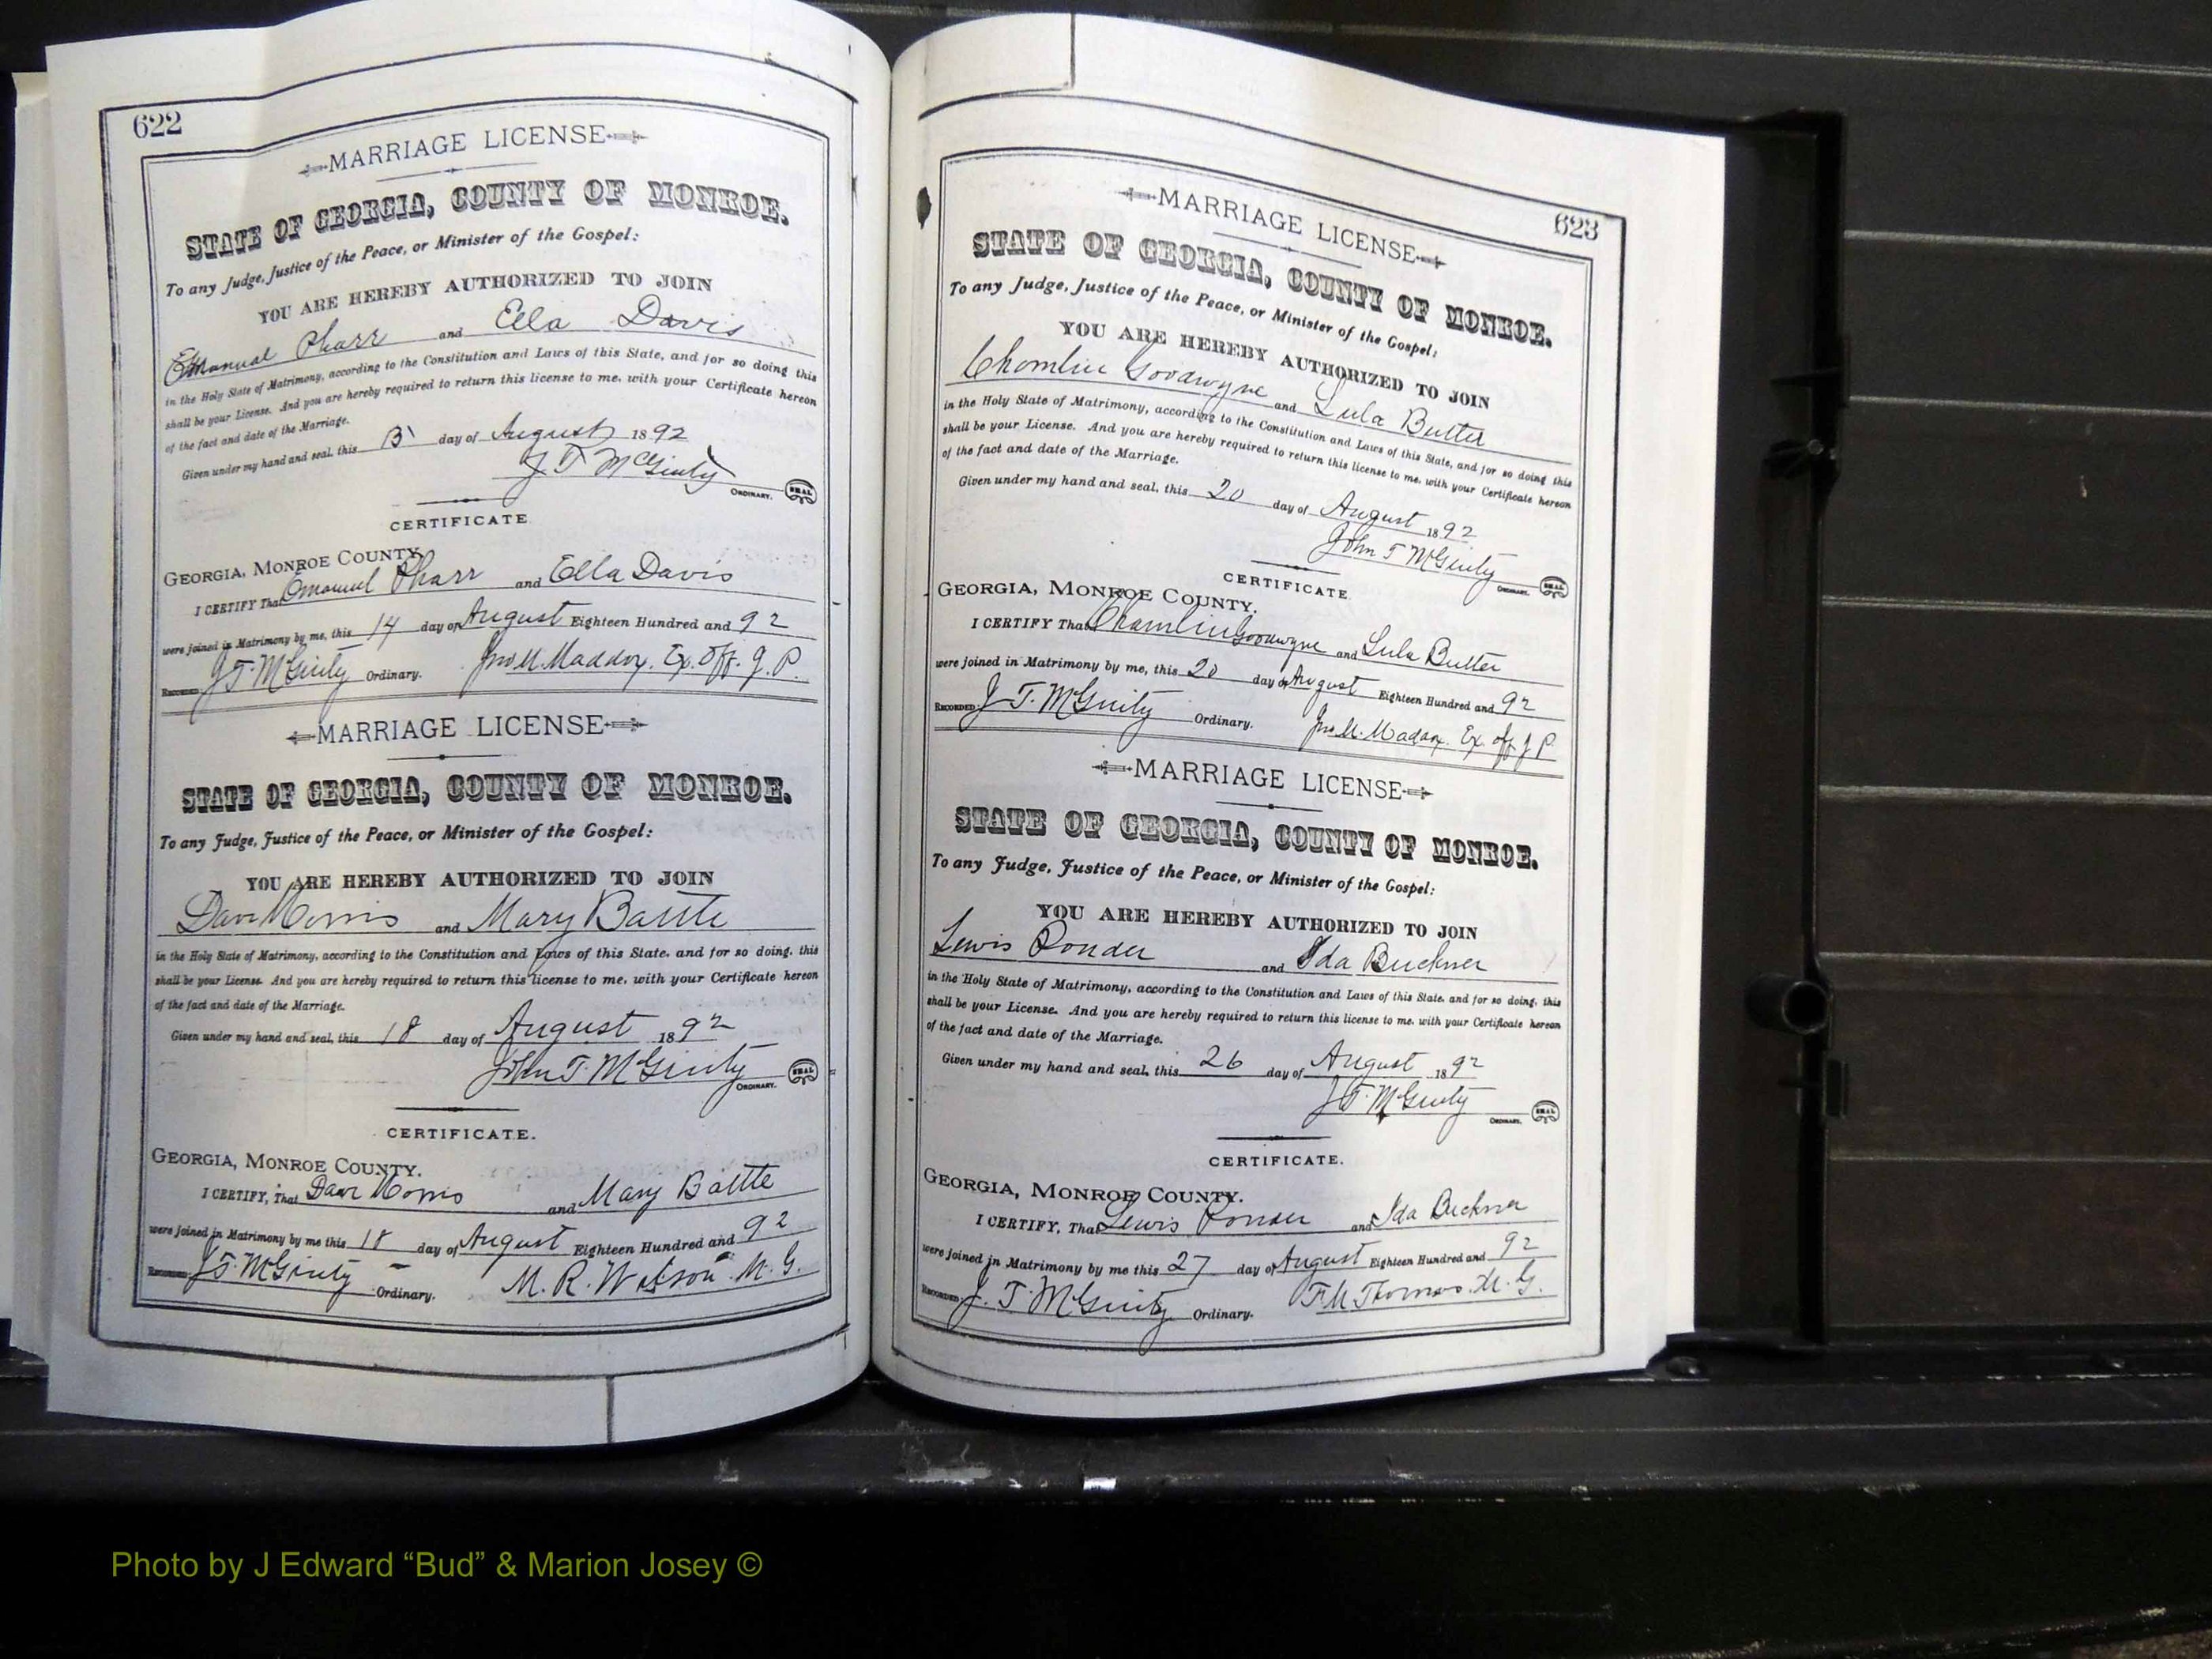 622
MARRIAGE LICENSE
STATE OF GEORGIA, COUNTY OF MONROE.
To any Judge, Justice of the Peace, or Minister of the Gospel:
YOU ARE HEREBY AUTHORIZED TO JOIN
Emanual Pharr and Ella Davis
in the Holy State of Matrimony, according to the Constitution and Laws of this State, and for so doing this
shall be your License. And you are hereby required to return this license to me, with your Certificate hereon
of the fact and date of the Marriage.
Given under my hand and seal, this 13 day of August 1892
J T McGinty
ORDINARY. SEAL
CERTIFICATE
GEORGIA, MONROE COUNTY.
I CERTIFY That Emanuel Pharr and Ella Davis
were joined in Matrimony by me, this 14 day of August Eighteen Hundred and 92
RECORDED J. T. McGinty Ordinary. Jno M. Maddox. Ex. Off. J. P.
MARRIAGE LICENSE
STATE OF GEORGIA, COUNTY OF MONROE.
To any Judge, Justice of the Peace, or Minister of the Gospel:
YOU ARE HEREBY AUTHORIZED TO JOIN
Dave Morris and Mary Battle
in the Holy State of Matrimony, according to the Constitution and Laws of this State, and for so doing, this
shall be your License. And you are hereby required to return this license to me, with your Certificate hereon
of the fact and date of the Marriage.
Given under my hand and seal, this 18 day of August 1892
John T. McGinty
ORDINARY. SEAL
CERTIFICATE.
GEORGIA, MONROE COUNTY.
I CERTIFY, That Dave Morris and Mary Battle
were joined in Matrimony by me this 18 day of August Eighteen Hundred and 92
RECORDED J. T. McGinty Ordinary. M. R. Watson M. G.
623
MARRIAGE LICENSE
STATE OF GEORGIA, COUNTY OF MONROE.
To any Judge, Justice of the Peace, or Minister of the Gospel:
YOU ARE HEREBY AUTHORIZED TO JOIN
Chomlin Goodwyne and Lula Butter
in the Holy State of Matrimony, according to the Constitution and Laws of this State, and for so doing this
shall be your License. And you are hereby required to return this license to me, with your Certificate hereon
of the fact and date of the Marriage.
Given under my hand and seal, this 20 day of August 1892
John T McGinty
ORDINARY. SEAL
CERTIFICATE
GEORGIA, MONROE COUNTY.
I CERTIFY That Chomlin Goodwyne and Lula Butter
were joined in Matrimony by me, this 20 day of August Eighteen Hundred and 92
RECORDED J. T. McGinty Ordinary. Jno M. Maddox. Ex. off J P.
MARRIAGE LICENSE
STATE OF GEORGIA, COUNTY OF MONROE.
To any Judge, Justice of the Peace, or Minister of the Gospel:
YOU ARE HEREBY AUTHORIZED TO JOIN
Lewis Ponder and Ida Buckner
in the Holy State of Matrimony, according to the Constitution and Laws of this State, and for so doing, this
shall be your License. And you are hereby required to return this license to me, with your Certificate hereon
of the fact and date of the Marriage.
Given under my hand and seal, this 26 day of August 1892
J. T. McGinty
ORDINARY. SEAL
CERTIFICATE.
GEORGIA, MONROE COUNTY.
I CERTIFY, That Lewis Ponder and Ida Buckner
were joined in Matrimony by me this 27 day of August Eighteen Hundred and 92
RECORDED J. T. McGinty Ordinary. F. M. Thomas. M. G.
Photo by J Edward “Bud” & Marion Josey ©